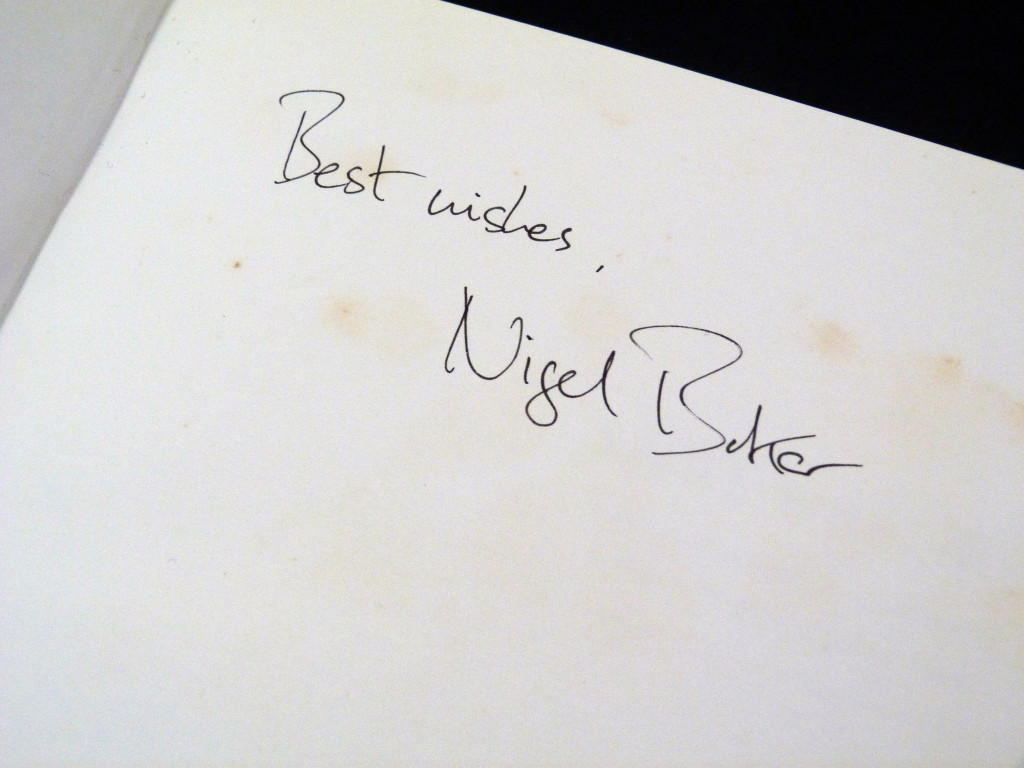 Best wishes,
Nigel Baker